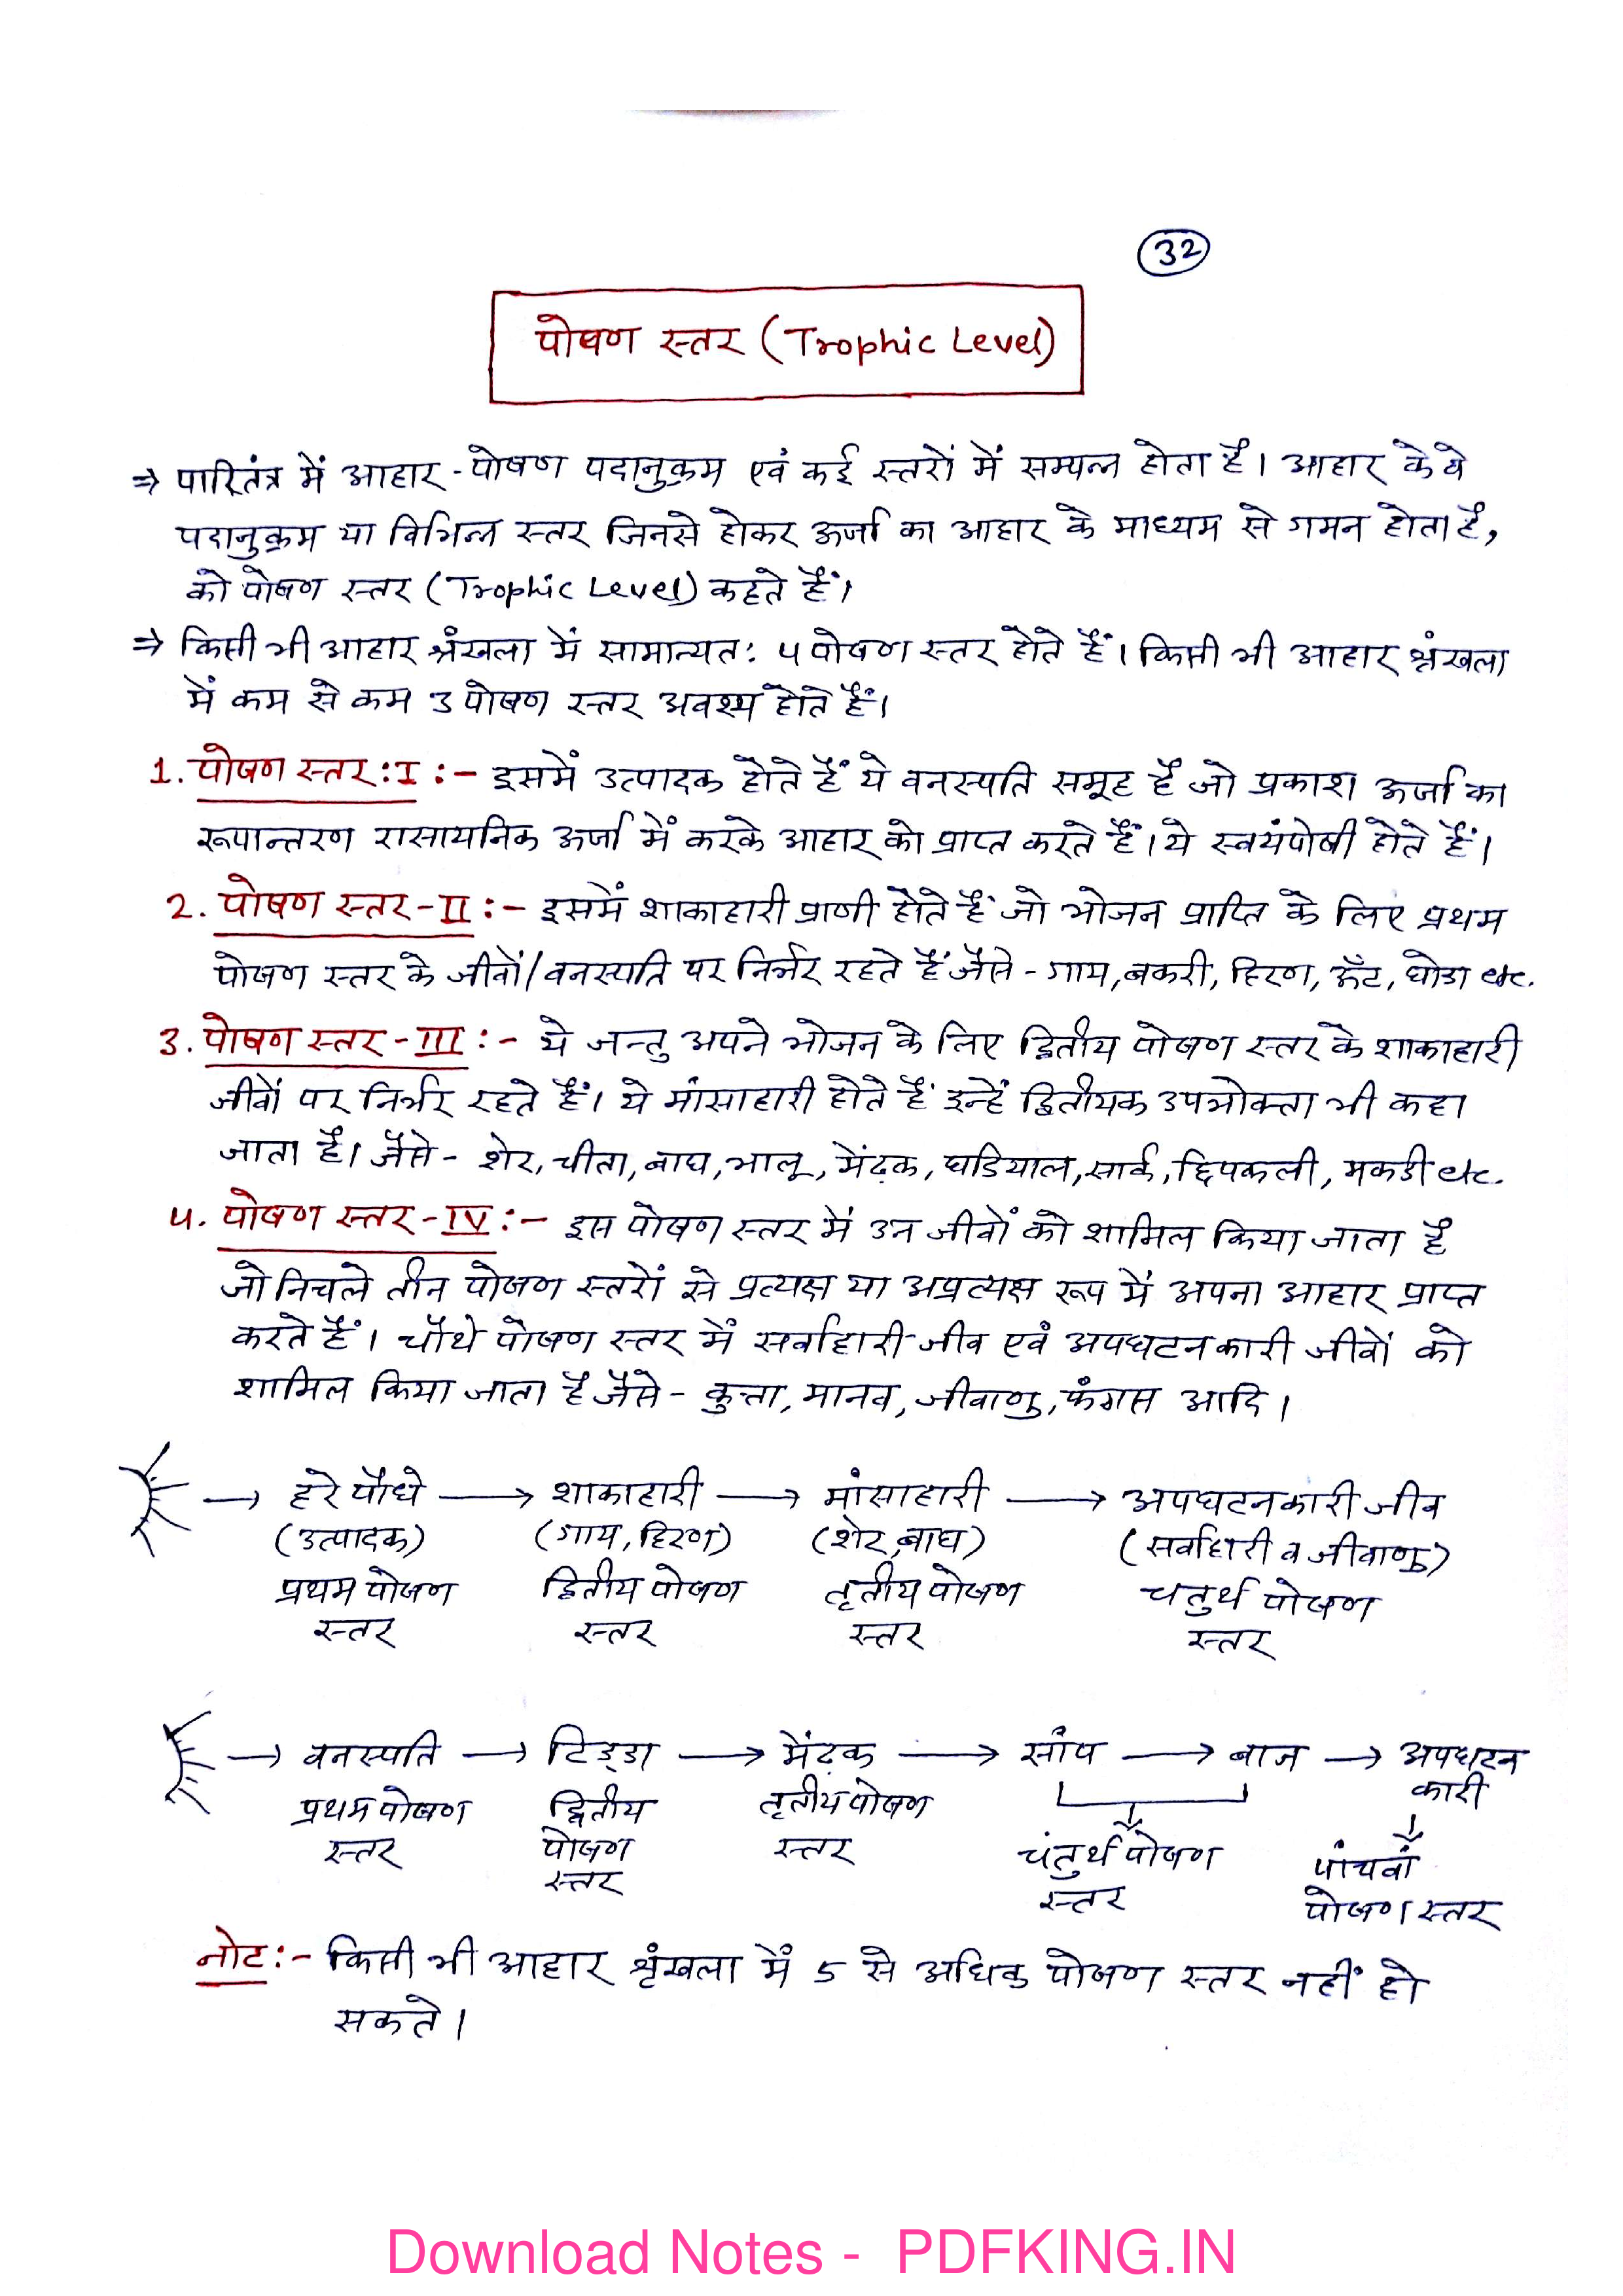 32
पोषण स्तर (Trophic Level)
⇒ पारितंत्र में आहार-पोषण पदानुक्रम एवं कई स्तरों में सम्पन्न होता है। आहार के ये
पदानुक्रम या विभिन्न स्तर जिनसे होकर ऊर्जा का आहार के माध्यम से गमन होता है,
को पोषण स्तर (Trophic Level) कहते हैं।
⇒ किसी भी आहार श्रंखला में सामान्यतः 4 पोषण स्तर होते हैं। किसी भी आहार श्रंखला
में कम से कम 3 पोषण स्तर अवश्य होते हैं।
1. पोषण स्तर:I :- इसमें उत्पादक होते हैं ये वनस्पति समूह हैं जो प्रकाश ऊर्जा का
रूपान्तरण रासायनिक ऊर्जा में करके आहार को प्राप्त करते हैं। ये स्वयंपोषी होते हैं।
2. पोषण स्तर-II :- इसमें शाकाहारी प्राणी होते हैं जो भोजन प्राप्ति के लिए प्रथम
पोषण स्तर के जीवों/वनस्पति पर निर्भर रहते हैं जैसे - गाय, बकरी, हिरण, ऊँट, घोडा etc.
3. पोषण स्तर-III :- ये जन्तु अपने भोजन के लिए द्वितीय पोषण स्तर के शाकाहारी
जीवों पर निर्भर रहते हैं। ये मांसाहारी होते हैं इन्हें द्वितीयक उपभोक्ता भी कहा
जाता है। जैसे - शेर, चीता, बाघ, भालू, मेंढक, घडियाल, सार्क, छिपकली, मकडी etc.
4. पोषण स्तर-IV :- इस पोषण स्तर में उन जीवों को शामिल किया जाता है
जो निचले तीन पोषण स्तरों से प्रत्यक्ष या अप्रत्यक्ष रूप में अपना आहार प्राप्त
करते हैं। चौथे पोषण स्तर में सर्वाहारी जीव एवं अपघटनकारी जीवों को
शामिल किया जाता है जैसे - कुत्ता, मानव, जीवाणु, फंगस आदि।
→ हरे पौधे → शाकाहारी → मांसाहारी → अपघटनकारी जीव
(उत्पादक) (गाय, हिरण) (शेर, बाघ) (सर्वाहारी व जीवाणु)
प्रथम पोषण द्वितीय पोषण तृतीय पोषण चतुर्थ पोषण
स्तर स्तर स्तर स्तर
→ वनस्पति → टिड्डा → मेंढक → सांप → बाज → अपघटन
कारी
प्रथम पोषण द्वितीय तृतीय पोषण
स्तर पोषण स्तर चंतुर्थ पोषण पांचवां
स्तर स्तर पोषण स्तर
नोट :- किसी भी आहार शृंखला में 5 से अधिक पोषण स्तर नहीं हो
सकते।
Download Notes - PDFKING.IN